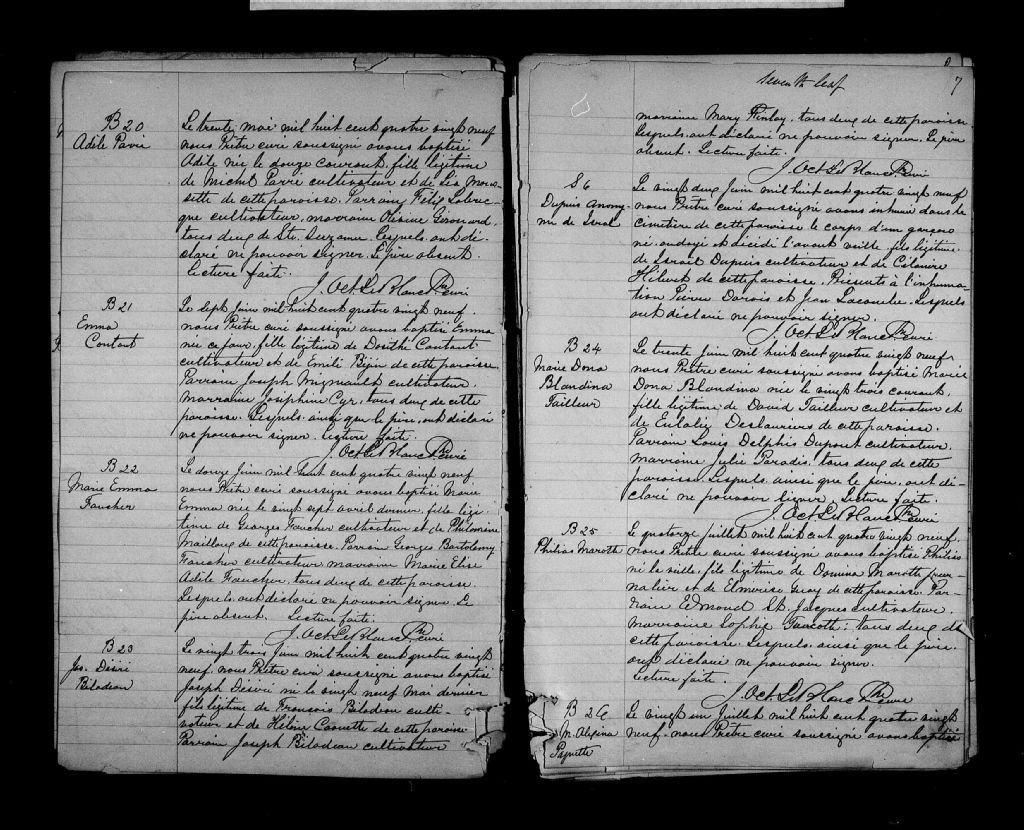 B 20
Adèle Parré
Le trente mai mil huit cent quatre vingt neuf
nous Prêtre curé soussigné avons baptisé
Adèle née le douze courant, fille légitime
de Michel Parré cultivateur et de Lia
de cette paroisse. Parrain Félix
cultivateur, marraine Girouard,
tous deux de Ste. Suzanne. Lesquels ont dé-
claré ne pouvoir signer. Le père absent.
Lecture faite.
J. Oct. Le Blanc Ptre curé
B 21
Emma
Contant
Le sept Juin mil huit cent quatre vingt neuf.
nous Prêtre curé soussigné avons baptisé Emma
née ce jour, fille légitime de Dosithé Contant
cultivateur et de Emilie de cette paroisse.
Parrain Joseph Migneault cultivateur.
marraine Josephine Cyr, tous deux de cette
paroisse. Lesquels ainsi que le père, ont déclaré
ne pouvoir signer. Lecture faite.
J. Oct. Le Blanc Ptre curé
B 22
Marie Emma
Faucher
Le douze Juin mil huit cent quatre vingt neuf.
nous Prêtre curé soussigné avons baptisé Marie
Emma née le vingt sept avril dernier, fille légi-
time de Georges Faucher cultivateur et de Philomène
Mailloux de cette paroisse. Parrain Georges Bartolemy
Faucher cultivateur marraine Marie Elise
Adèle Faucher, tous deux de cette paroisse.
Lesquels ont déclaré ne pouvoir signer. Le
père absent. Lecture faite.
J. Oct. Le Blanc Ptre curé
B 23
Jos. Désiré
Bilodeau
Le vingt trois Juin mil huit cent quatre vingt
neuf. nous Prêtre curé soussigné avons baptisé
Joseph Désiré né le vingt neuf Mai dernier
fils légitime de François Bilodeau culti-
vateur et de Hélène Caouette de cette paroisse
Parrain Joseph Bilodeau cultivateur
seventh leaf
7
marraine Mary Finlay. tous deux de cette paroisse.
Lesquels ont déclaré ne pouvoir signer. Le père
absent. Lecture faite.
J. Oct. Le Blanc Ptre curé
S 6
Dupuis Anony-
me de Isral
Le vingt deux Juin mil huit cent quatre vingt neuf
nous Prêtre curé soussigné avons inhumé dans le
cimetière de cette paroisse le corps d'un garçon
né, ondoyé et décédé l'avant veille. fils légitime
de Israël Dupuis cultivateur et de Célanire
Hébert de cette paroisse. Présents à l'inhuma-
tion Pierre Darois et Jean Lacombe. Lesquels
ont déclaré ne pouvoir signer.
J. Oct. Le Blanc Ptre curé
B 24
Marie Dona
Blandina
Tailleur
Le trente Juin mil huit cent quatre vingt neuf
nous Prêtre curé soussigné avons baptisé Marie
Dona Blandina née le vingt trois courant.
fille légitime de David Tailleur cultivateur et
de Eulalie Deslauriers de cette paroisse.
Parrain Louis Delphis Dupont cultivateur.
marraine Julie Paradis. tous deux de cette
paroisse. Lesquels ainsi que le père, ont dé-
claré ne pouvoir signer. Lecture faite.
J. Oct. Le Blanc Ptre curé
B 25
Philias Marotte
Le quatorze Juillet mil huit cent quatre vingt neuf.
nous Prêtre curé soussigné avons baptisé Philias
né la veille. fils légitime de Domina Marotte jour-
nalier et de Elmerise Guay de cette paroisse. Par-
rain Edmond St. Jacques cultivateur.
marraine Sophie tous deux de
cette paroisse. Lesquels ainsi que le père.
ont déclaré ne pouvoir signer.
Lecture faite.
J. Oct. Le Blanc Ptre curé
B 26
M. Alexina
Paquette
Le vingt un Juillet mil huit cent quatre vingt
neuf. nous Prêtre curé soussigné avons baptisé